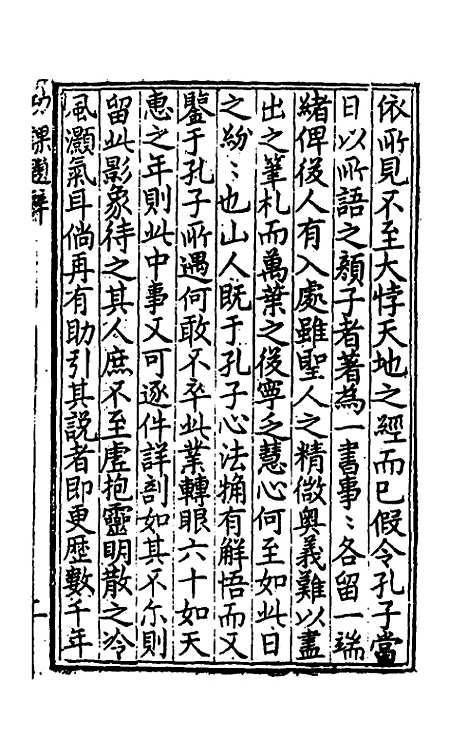 依所見不至大悖天地之經而已假令孔子當
日以所語之顏子者著為一書事〻各留一端
緒俾後人有入處雖聖人之精微奥義難以盡
出之筆札而萬葉之後寧乏慧心何至如此日
之紛〻也山人既于孔子心法觕有解悟而又
鑒于孔子所遇何敢不卒此業轉眼六十如天
惠之年則此中事又可逐件詳剖如其不尓則
留此影象待之其人庶不至虛抱靈明散之冷
風灝氣耳倘再有助引其説者即更歷數千年